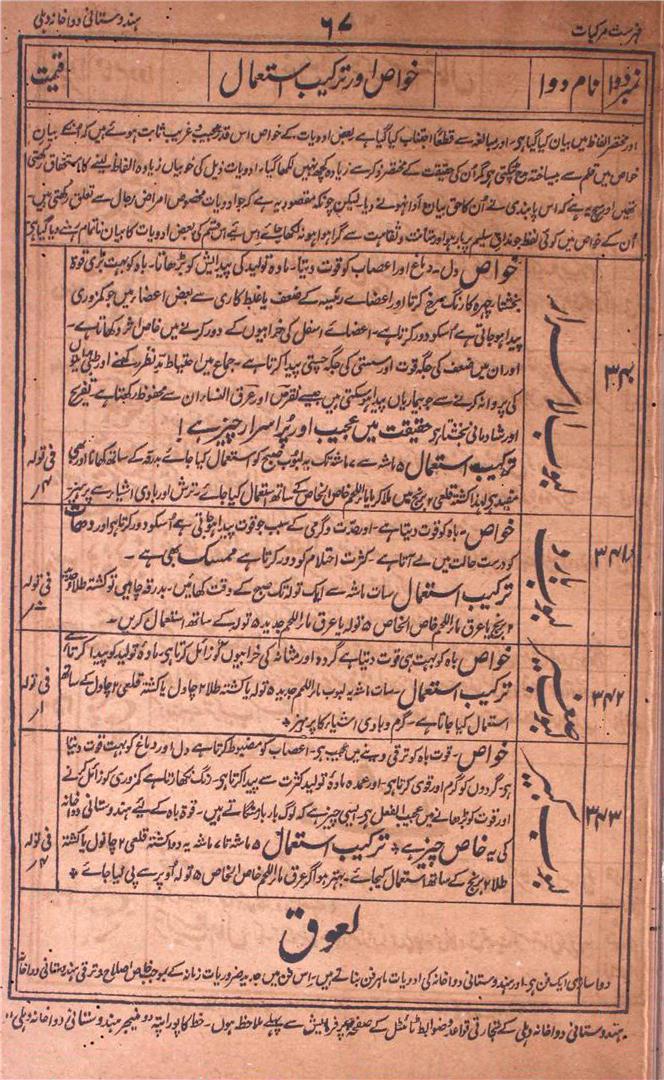 فہرست مرکبات ۶۷ ہندوستانی دواخانہ دہلی
نمبر دوا نام دوا خواص اور ترکیب استعمال قیمت
اور مختصر الفاظ میں بیان کیا گیا ہی۔ اور مبالغہ سے قطعاً اجتناب کیا گیا ہے بعض ادویات کے خواص اس قدر عجیب و غریب ثابت ہوئے ہیں کہ انکے بیان
خواص میں قلم سے بیساختہ مدح ٹپکتی ہو مگر اُن کی حقیقت کے مختصر ذکر سے زیادہ کچھ نہیں لکھا گیا۔ ادویات ذیل کی خوبیاں زیادہ الفاظ لینے کا استحقاق رکھتی
تھیں اور سچ یہ ہے کہ اس پابندی نے اُن کا حق بیان ادا نہونے دیا۔ لیکن چونکہ مقصود یہ ہے کہ جو ادویات مخصوص امراض رجال سے تعلق رکھتی ہیں۔
اُن کے خواص میں کوئی لفظ جو مذاق سلیم پر بار ہو اور متانت و ثقاہت سے گرا ہوا ہو نہ لکھا جائے اِس لئے اس قسم کی بعض ادویات کا بیان ناتمام رہنے دیا گیا ہی
۳۴۰
لبوب الاسرار
خواص دل۔ دماغ اور اعصاب کو قوت دیتا۔ مادہ تولید کی پیدایش کو بڑھاتا۔ باہ کو بہت بڑی قوۃ
بخشتا چہرہ کا رنگ سرخ کرتا اور اعضائے رئیسہ کے ضعف یا غلط کاری سے بعض اعضاء میں جو کمزوری
پیدا ہو جاتی ہے اُسکو دور کرتا ہے۔ اعضائے اسفل کی خرابیوں کے دور کرنے میں خاص اثر دکھاتا ہے۔
اور ان میں ضعف کی جگہ قوت اور سستی کی جگہ چستی پیدا کرتا ہے۔ جماع میں احتیاط مد نظر نہ رکھنے اور طبی ہدایتوں
کی پروا نہ کرنے سے جو بیماریاں پیدا ہو سکتی ہیں جیسے نقرس اور عرق النساء ان سے محفوظ رکھتا ہے۔ تفریح
اور شادمانی بخشتا ہو حقیقت میں عجیب اور پُر اسرار چیز ہے!
ترکیب استعمال ۵ ماشہ سے ۷ ماشہ تک یہ لبوب صبح کو استعمال کیا جائے بدرقہ کے ساتھ کھانا اور بھی
مفید ہی لہٰذا کشتہ قلعی ۲ برنج میں ملا کر ماء اللحم خاص الخاص کے ساتھ استعمال کیا جائے۔ ترش اور بادی اشیاء سے پرہیز
فی تولہ
۴؍
۳۴۱
لبوب بارد
خواص۔ باہ کو قوت دیتا ہے۔ اور حدّت و گرمی کے سبب جو قوت پیدا ہو جاتی ہے اُسکو دور کرتا ہو اور دھات
کو درست حالت میں لے آتا ہے۔ کثرت احتلام کو دور کرتا ہے ممسک بھی ہے۔
ترکیب استعمال سات ماشہ سے ایک تولہ تک صبح کے وقت کھائیں۔ بدرقہ چاہیں تو کشتہ طلاء
۲ برنج یا عرق ماء اللحم خاص الخاص ۵ تولہ یا عرق ماء اللحم جدید ۵ تولہ کے ساتھ استعمال کریں۔
فی تولہ
۳۴۲
لبوب صغیر
خواص باہ کو بہت ہی قوت دیتا ہے گردہ اور مثانہ کی خرابیوں کو زائل کرتا ہی۔ مادۂ تولید کو پیدا کرتا ہے
ترکیب استعمال۔ سات ماشہ یہ لبوب ماء اللحم جدید ۵ تولہ یا کشتہ طلا ۲ چاول یا کشتہ قلعی ۲ چاول کے ساتھ
استعمال کیا جاتا ہے۔ گرم و بادی اشیاء کا پرہیز *
فی تولہ
۱؍
۳۴۳
لبوب کبیر
خواص۔ قوت باہ کو ترقی دینے میں عجیب ہی۔ اعصاب کو مضبوط کرتا ہے دل اور دماغ کو بہت قوت دیتا
ہی۔ گردوں کو گرم اور قوی کرتا ہی۔ اور عمدہ مادۂ تولید کثرت سے پیدا کرتا ہی۔ رنگ نکھارتا ہے کمزوری کو زائل کرنے
اور قوت کو بڑھانے میں عجیب الفعل ہی۔ ایسی چیز ہے کہ لوگ بار بار منگاتے ہیں۔ قوۃ باہ کے لئے ہندوستانی دواخانہ
کی یہ خاص چیز ہے * ترکیب استعمال ۵ ماشہ تا ۷ ماشہ یہ دوا کشتہ قلعی ۲ چانول یا کشتہ
طلا ۲ برنج کے ساتھ استعمال کیجائے۔ بہتر ہو اگر عرق ماء اللحم خاص الخاص ۵ تولہ اُوپر سے پی لیا جائے *
فی تولہ
۴؍
لعوق
دوا سازی ایک فن ہی۔ اور ہندوستانی دواخانہ کی ادویات ماہر فن بناتے ہیں۔ اس فن میں جدید ضروریات زمانہ کے بموجب خاص اصلاح و ترقی ہندوستانی دواخانہ
ہندوستانی دواخانہ دہلی کے تجارتی قواعد و ضوابط ٹائٹل کے صفحہ پر فرمایش سے پہلے ملاحظہ ہوں۔ خط کا پورا پتہ دو منیجر ہندوستانی دواخانہ دہلی،،